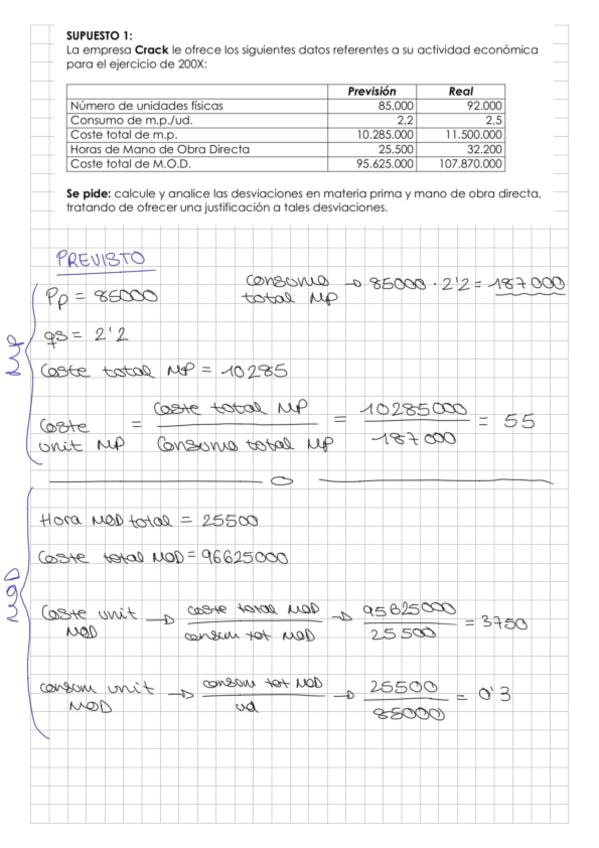 SUPUESTO 1:
La empresa Crack le ofrece los siguientes datos referentes a su actividad económica
para el ejercicio de 200X:
Previsión Real
Número de unidades físicas 85.000 92.000
Consumo de m.p./ud. 2,2 2,5
Coste total de m.p. 10.285.000 11.500.000
Horas de Mano de Obra Directa 25.500 32.200
Coste total de M.O.D. 95.625.000 107.870.000
Se pide: calcule y analice las desviaciones en materia prima y mano de obra directa,
tratando de ofrecer una justificación a tales desviaciones.
PREVISTO
MP
Pp = 85000
consumo total MP → 85000 · 2'2 = 187000
qs = 2'2
Coste total MP = 10285
Coste unit MP = Coste total MP / Consumo total MP = 10285000 / 187000 = 55
MOD
Hora MOD total = 25500
Coste total MOD = 96625000
Coste unit MOD → coste total MOD / consum tot MOD → 95625000 / 25500 = 3750
consum unit MOD → consum tot MOD / ud → 25500 / 85000 = 0'3